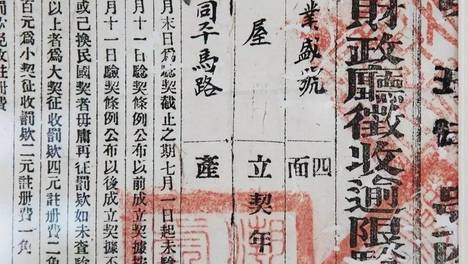 財政廳徵收逾限驗
業盛號 四面
屋 立契年
同子馬路 產
月末日為驗契截止之期七月一日起未驗
月十一日驗契條例公布以前成立契據
月十一日驗契條例公布以後成立契據不
或已換民國契者毋庸再征罰款如未查驗
以上者為大契征收罰款四元註册費二角
百元為小契征收罰款二元註册費一角
免收註册費